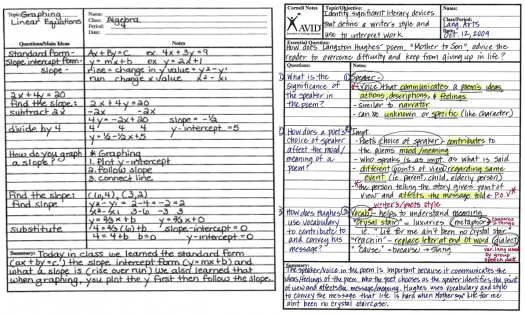 Topic: Graphing Linear Equations
Name:
Class: Algebra
Period:
Date:
Questions/Main Ideas
Notes
Standard Form - Ax + By = C ex. 4x + 3y = 9
Slope intercept form - y = mx + b ex y = 2x + 1
slope - rise = change in y value = y₂ - y₁
run change x value x₂ - x₁
2x + 4y = 20
find the slope: 2x + 4y = 20
subtract 2x -2x -2x
4y = -2x + 20 slope = -½
divide by 4 4 4 4 y-intercept = 5
y = -½x + 5
How do you graph a slope?
* Graphing
1. Plot y-intercept
2. Follow slope
3. connect line
Find the slope: (6,4), (3,2)
find slope
y = ⅔x + b y = ⅔x + 0
substitute 4 = ⅔(6) + b slope-intercept = 0
4 = 4 + b b = 0 y-intercept = 0
Summary: Today in class we learned the standard form
(ax + by = c) the slope intercept form (y = mx + b) and
what a slope is (rise over run) we also learned that
when graphing, you plot the y first then follow the slope.
Cornell Notes
AVID
Topic/Objective:
Identify significant literary devices
that define a writer's style and
use to interpret work
Name:
Class/Period: Lang. Arts
Date: Oct 12, 2009
Essential Question:
How does Langston Hughes' poem, "Mother to Son", advice the
reader to overcome difficulty and keep from giving up in life?
Questions:
Notes:
① What is the significance of the speaker in the poem?
① Speaker -
* Voice that communicates a poem's ideas,
actions, descriptions, & feelings
- similar to narrator
- can be unknown or specific (like character)
② How does a poet's choice of speaker affect the mood/ meaning of a poem?
② Impt.
- Poet's choice of speaker contributes to
the poems mood/meaning
- who speaks is as impt. as what is said
- different points of view regarding same
event (ie. parent, child, elderly person)
* the person telling the story gives point of
view and affects the message told P.O.V.*
③ How does Hughes use vocabulary to contribute to and convey his message?
writer's/poet's style
③ Vocab - helps to understand meaning
"crystal stair" = luxuries (metaphor)
ie. "Life for me ain't been no crystal stair"
"reachin'" - replace letter at end of word (dialect)
"'Cause" - because → slang
Summary:
The speaker/voice in the poem is important because it communicates the
ideas/feelings of the poem. Who the poet chooses as the speaker identifies the point
of view and affects the message/meaning. Hughes uses vocabulary and style
to convey the message that life is hard when Mother says "Life for me
ain't been no crystal staircase.